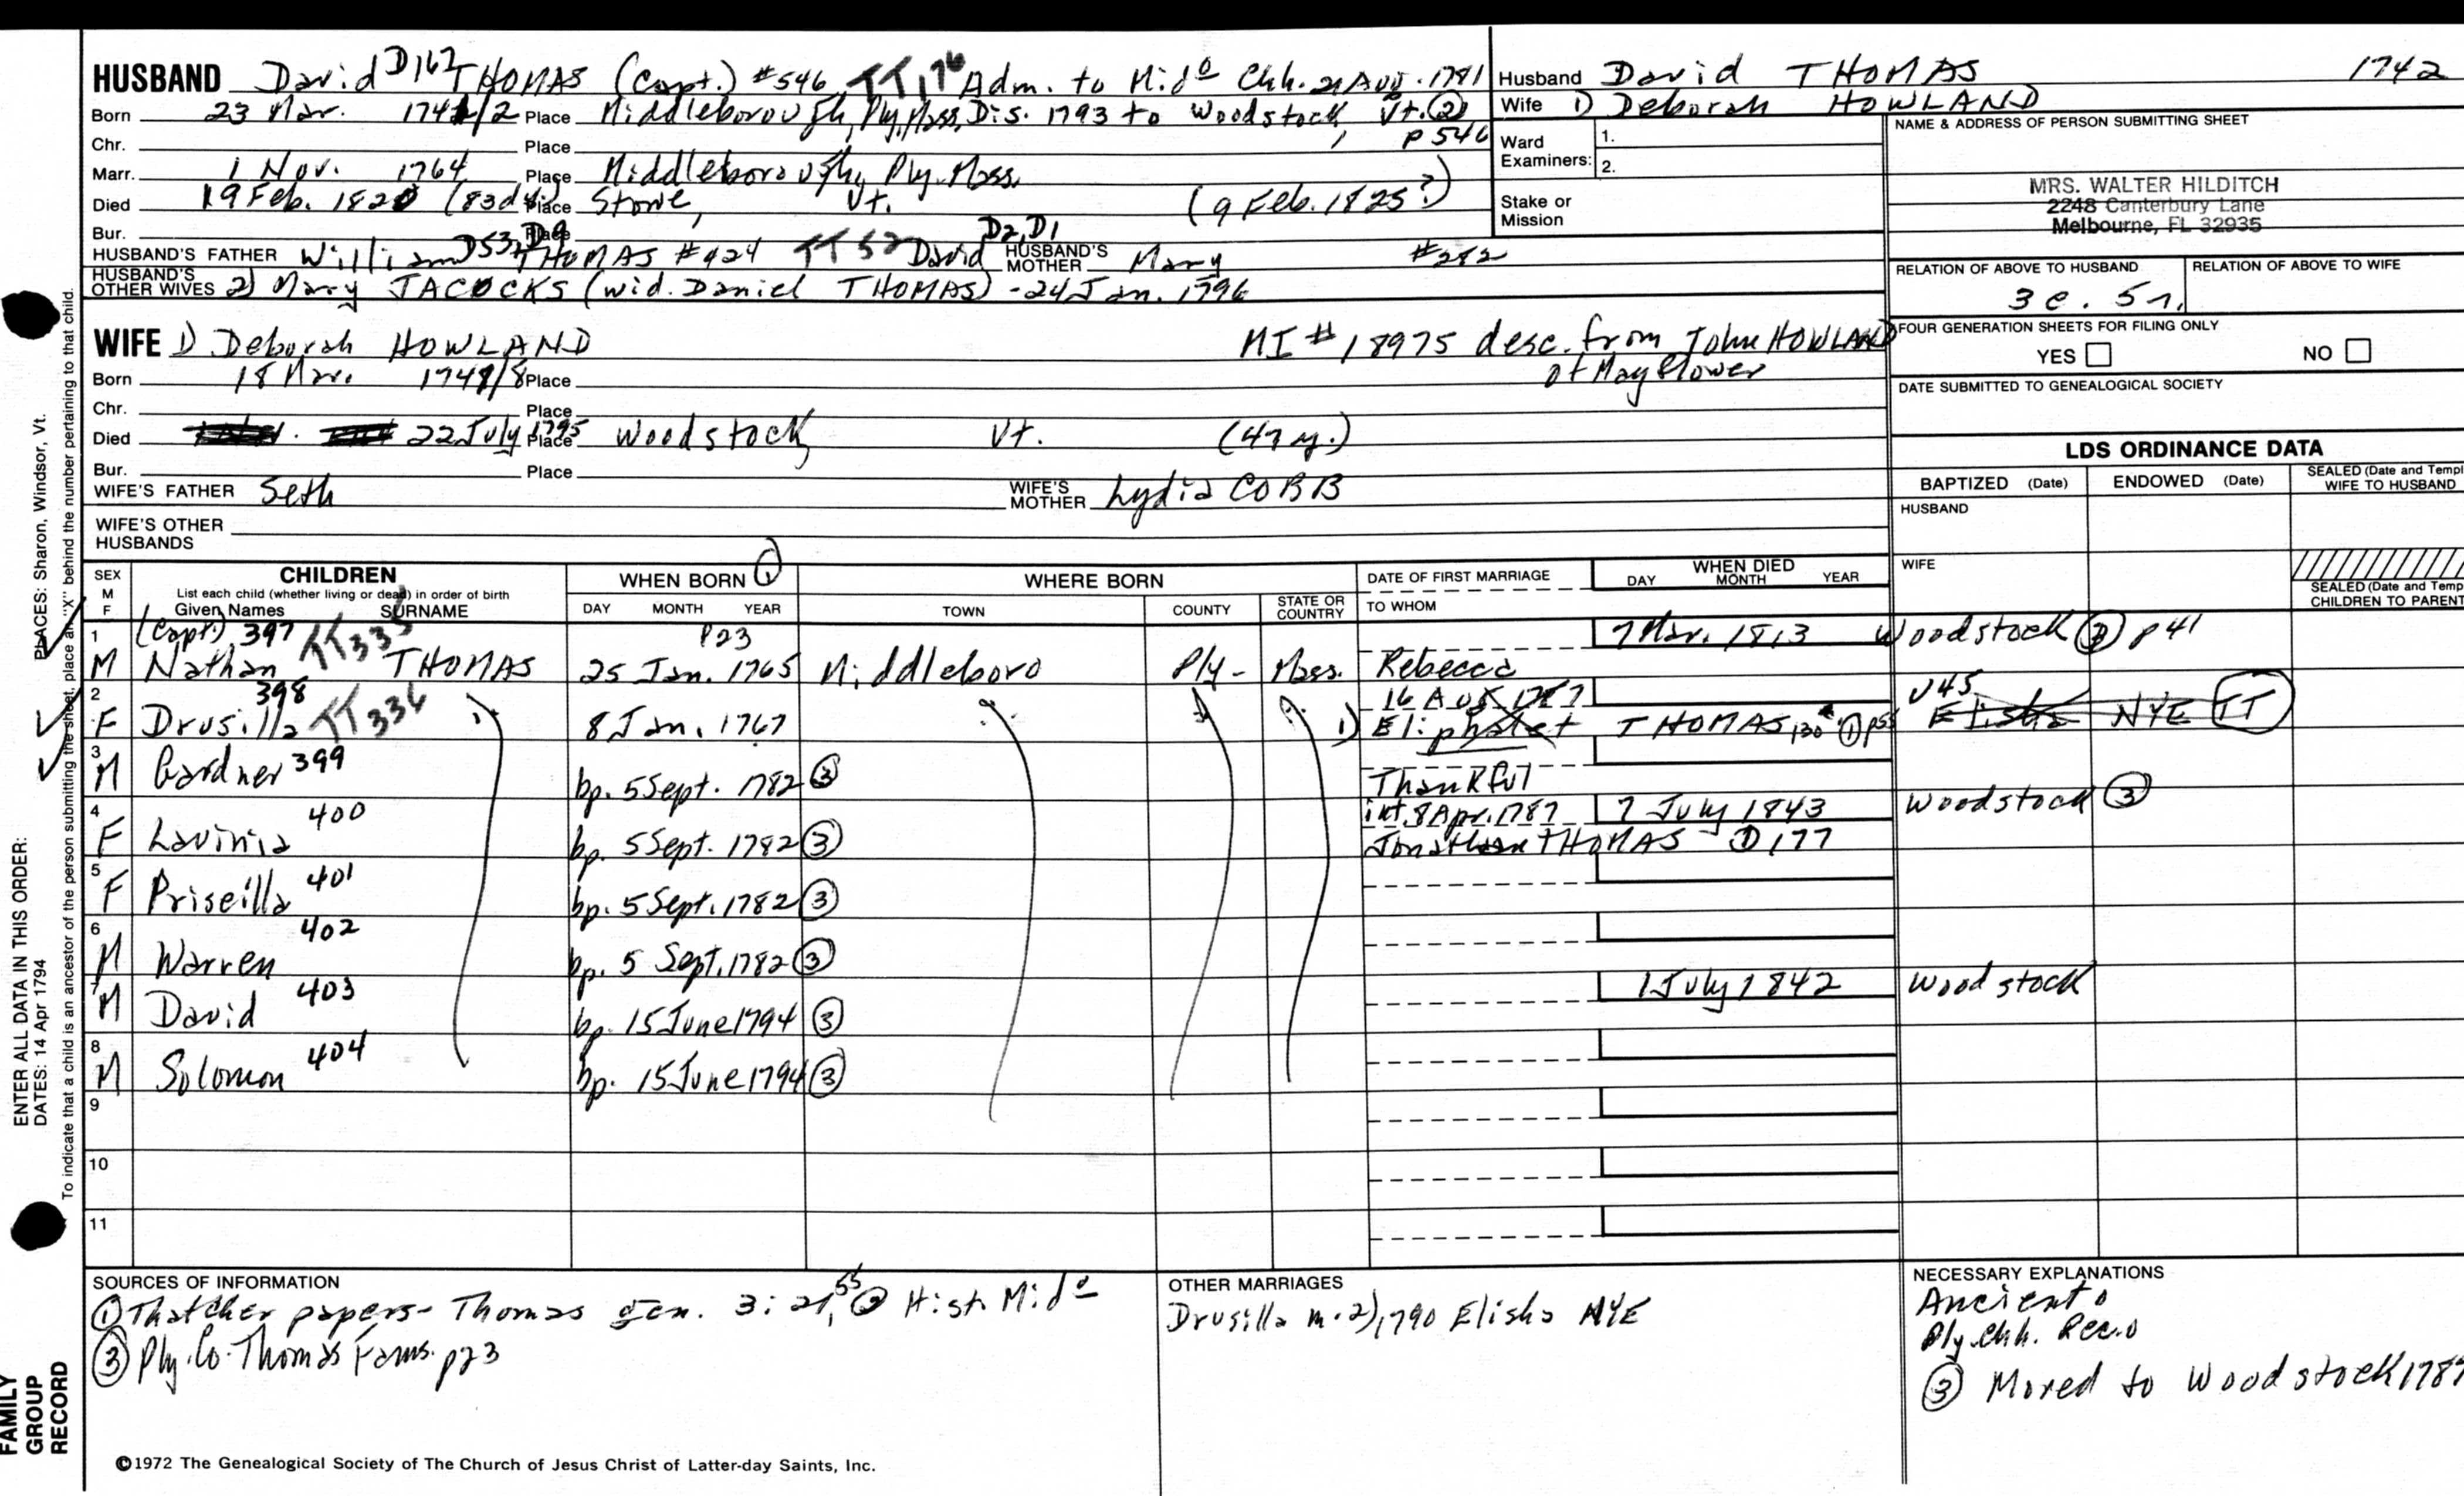 HUSBAND David D167 THOMAS (Capt.) #546 TT176 Adm. to Mido Chh. 21 Aug. 1781
Born 23 Mar. 1741/2 Place Middleborough, Ply, Mass, Dis. 1793 to Woodstock, Vt. (2)
Chr. Place p 546
Marr. 1 Nov. 1764 Place Middleborough, Ply. Mass.
Died 19 Feb. 1820 (83d y.) Place Stowe, Vt. (9 Feb. 1825?)
Bur. Place
HUSBAND'S FATHER William D53, D9 THOMAS #424 TT52 David D2, D1 HUSBAND'S MOTHER Mary #282
HUSBAND'S OTHER WIVES 2) Mary JACOCKS (wid. Daniel THOMAS) - 24 Jan. 1796
Husband David THOMAS 1742
Wife 1) Deborah HOWLAND
Ward Examiners: 1. 2.
Stake or Mission
NAME & ADDRESS OF PERSON SUBMITTING SHEET
MRS. WALTER HILDITCH
2248 Canterbury Lane
Melbourne, FL 32935
RELATION OF ABOVE TO HUSBAND RELATION OF ABOVE TO WIFE
3c. 5r.
FOUR GENERATION SHEETS FOR FILING ONLY
YES NO
DATE SUBMITTED TO GENEALOGICAL SOCIETY
WIFE 1) Deborah HOWLAND MI #18975 desc. from John HOWLAND
of Mayflower
Born 18 Mar. 1747/8 Place
Chr. Place
Died 22 July 1795 Place Woodstock, Vt. (47 y.)
Bur. Place
WIFE'S FATHER Seth WIFE'S MOTHER Lydia COBB
WIFE'S OTHER HUSBANDS
LDS ORDINANCE DATA
BAPTIZED (Date) ENDOWED (Date) SEALED (Date and Templ
WIFE TO HUSBAND
HUSBAND
WIFE
SEALED (Date and Temp
CHILDREN TO PARENT
SEX M F CHILDREN WHEN BORN (1) WHERE BORN DATE OF FIRST MARRIAGE WHEN DIED
List each child (whether living or dead) in order of birth
Given Names SURNAME DAY MONTH YEAR TOWN COUNTY STATE OR COUNTRY TO WHOM DAY MONTH YEAR
1 (Capt.) 397 TT335 p23 7 Mar. 1813 Woodstock (3) p41
M Nathan THOMAS 25 Jan. 1765 Middleboro Ply- Mass. Rebecca
2 398 TT336 16 Aug 1787 J45
F Drusilla 8 Jan. 1767 1) Eliphalet THOMAS 130 (1) p55 Elisha NYE TT
3 M Gardner 399 bp. 5 Sept. 1782 (3) Thankful
4 400 int. 8 Apr. 1787 7 July 1843 Woodstock (3)
F Lavinia bp. 5 Sept. 1782 (3) Jonathan THOMAS D177
5 F Priscilla 401 bp. 5 Sept. 1782 (3)
6 M Warren 402 bp. 5 Sept. 1782 (3)
7 M David 403 bp. 15 June 1794 (3) 1 July 1842 Woodstock
8 M Solomon 404 bp. 15 June 1794 (3)
9
10
11
SOURCES OF INFORMATION
(1) Thatcher papers - Thomas gen. 3: 21, 55 (2) Hist. Mido
(3) Ply. Co. Thomas Fams. p23
OTHER MARRIAGES
Drusilla m. 2), 1790 Elisha NYE
NECESSARY EXPLANATIONS
Ancient
Ply. Chh. Rec.
(3) Moved to Woodstock 1787
©1972 The Genealogical Society of The Church of Jesus Christ of Latter-day Saints, Inc.
FAMILY GROUP RECORD
ENTER ALL DATA IN THIS ORDER:
DATES: 14 Apr 1794 PLACES: Sharon, Windsor, Vt.
To indicate that a child is an ancestor of the person submitting the sheet, place an "X" behind the number pertaining to that child.